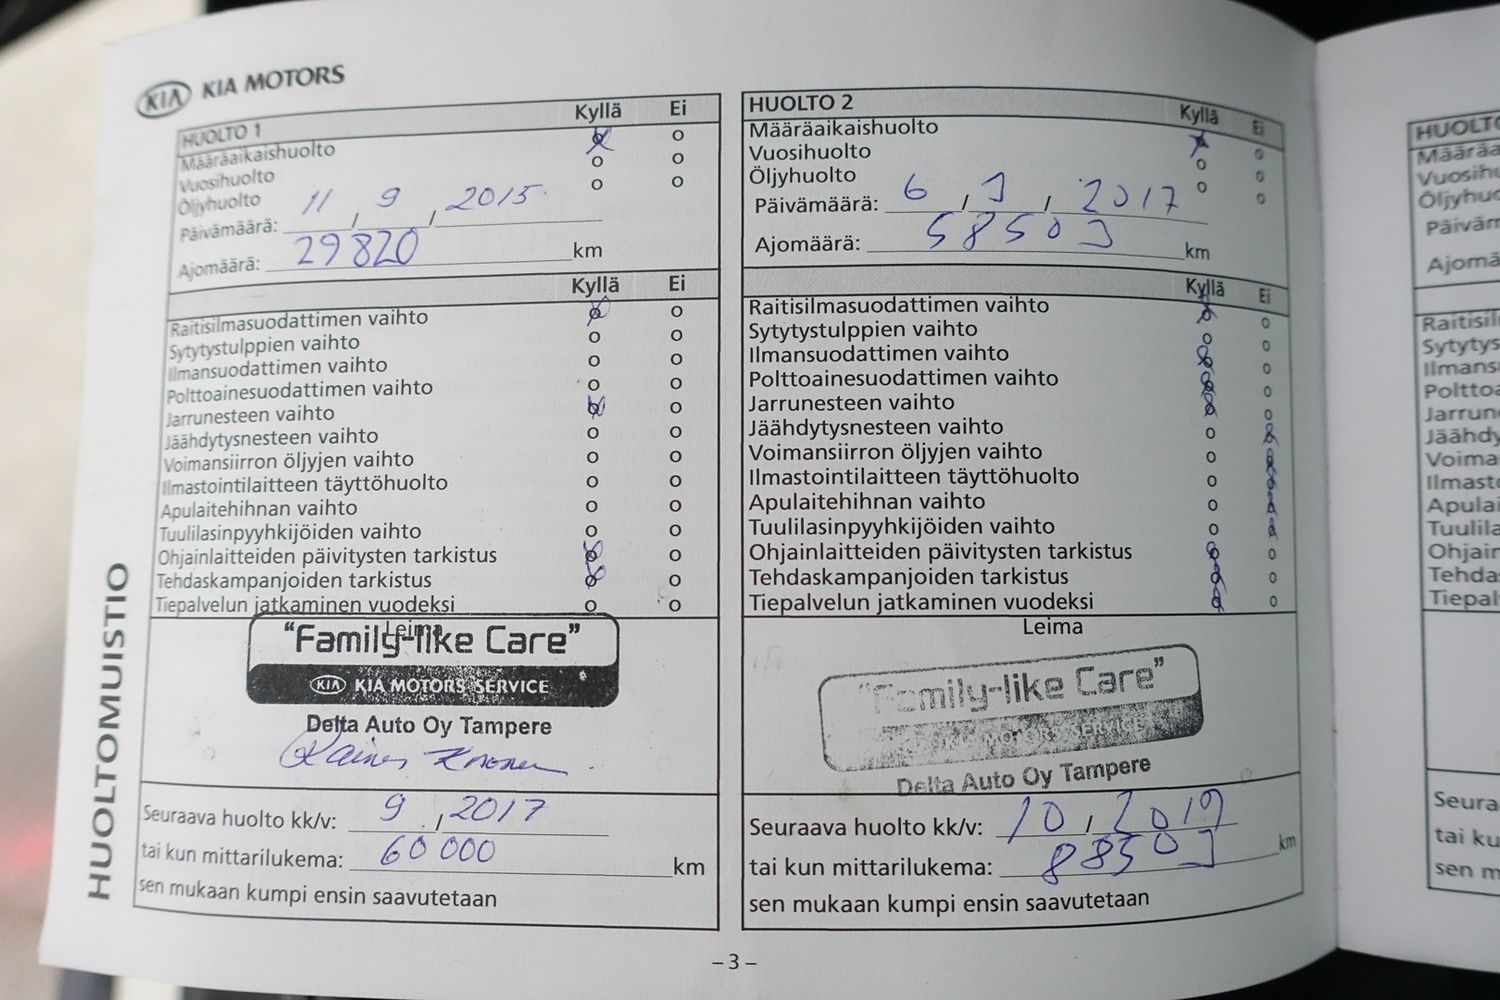 KIA KIA MOTORS
HUOLTO 1 Kyllä Ei
Määräaikaishuolto
Vuosihuolto
Öljyhuolto
Päivämäärä: 11 / 9 / 2015
Ajomäärä: 29820 km
Kyllä Ei
Raitisilmasuodattimen vaihto
Sytytystulppien vaihto
Ilmansuodattimen vaihto
Polttoainesuodattimen vaihto
Jarrunesteen vaihto
Jäähdytysnesteen vaihto
Voimansiirron öljyjen vaihto
Ilmastointilaitteen täyttöhuolto
Apulaitehihnan vaihto
Tuulilasinpyyhkijöiden vaihto
Ohjainlaitteiden päivitysten tarkistus
Tehdaskampanjoiden tarkistus
Tiepalvelun jatkaminen vuodeksi
Leima
"Family-like Care"
KIA KIA MOTORS SERVICE
Delta Auto Oy Tampere
Seuraava huolto kk/v: 9 / 2017
tai kun mittarilukema: 60 000 km
sen mukaan kumpi ensin saavutetaan
HUOLTO 2 Kyllä Ei
Määräaikaishuolto
Vuosihuolto
Öljyhuolto
Päivämäärä: 6 / / 2017
Ajomäärä: km
Kyllä Ei
Raitisilmasuodattimen vaihto
Sytytystulppien vaihto
Ilmansuodattimen vaihto
Polttoainesuodattimen vaihto
Jarrunesteen vaihto
Jäähdytysnesteen vaihto
Voimansiirron öljyjen vaihto
Ilmastointilaitteen täyttöhuolto
Apulaitehihnan vaihto
Tuulilasinpyyhkijöiden vaihto
Ohjainlaitteiden päivitysten tarkistus
Tehdaskampanjoiden tarkistus
Tiepalvelun jatkaminen vuodeksi
Leima
"Family-like Care"
KIA MOTORS SERVICE
Delta Auto Oy Tampere
Seuraava huolto kk/v: 10 / 2019
tai kun mittarilukema: km
sen mukaan kumpi ensin saavutetaan
HUOLTOMUISTIO
– 3 –
HUOLTO
Määräa
Vuosihu
Öljyhuo
Päiväm
Ajomä
Raitisil
Sytytys
Ilmans
Polttoa
Jarrun
Jäähdy
Voima
Ilmast
Apulai
Tuulila
Ohjain
Tehda
Tiepal
Seura
tai ku
sen m